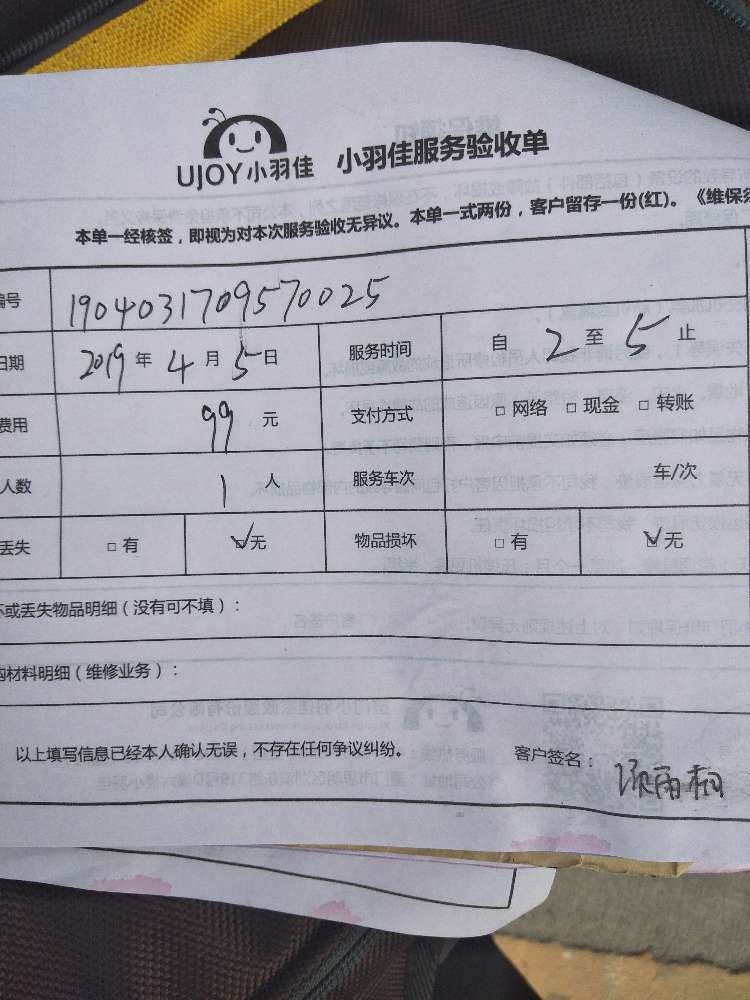 UJOY小羽佳 小羽佳服务验收单
本单一经核签，即视为对本次服务验收无异议。本单一式两份，客户留存一份(红)。《维保须
编号 1904031709570025
日期 2019 年 4 月 5 日 服务时间 自 2 至 5 止
费用 99 元 支付方式 □ 网络 □ 现金 □ 转账
人数 1 人 服务车次 车/次
丢失 □ 有 ☑ 无 物品损坏 □ 有 ☑ 无
坏或丢失物品明细（没有可不填）：
购材料明细（维修业务）：
以上填写信息已经本人确认无误，不存在任何争议纠纷。 客户签名：